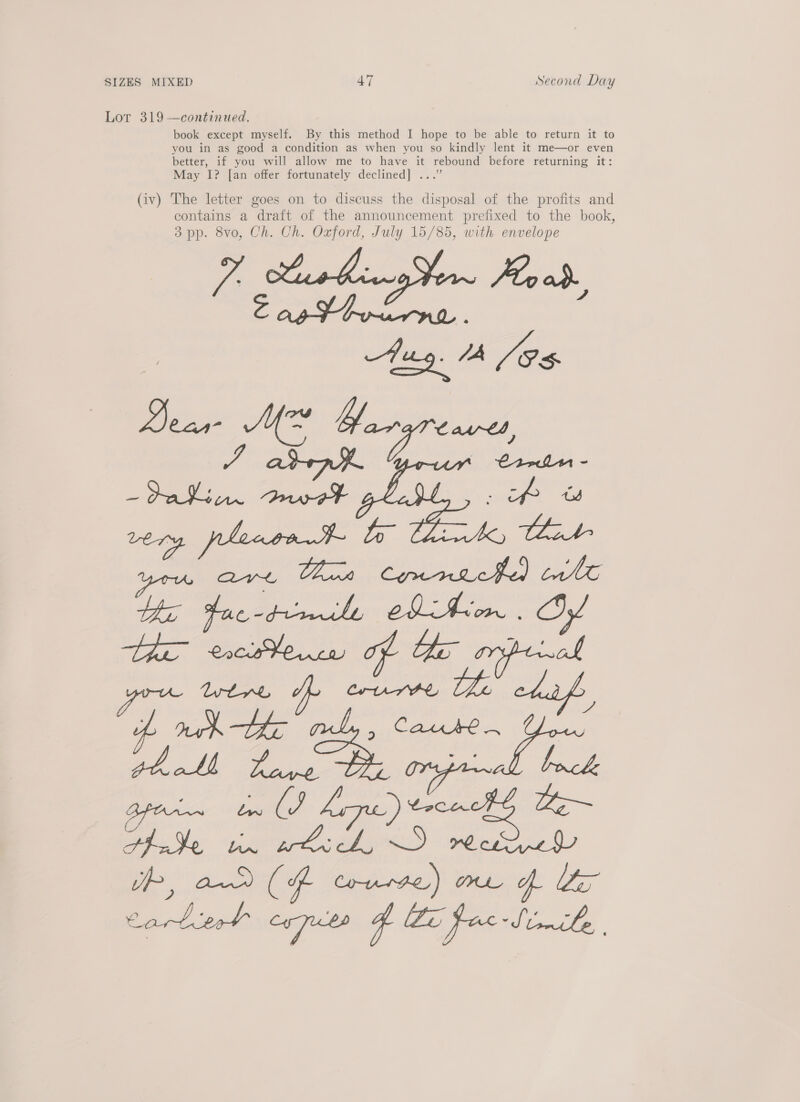 SIZES MIXED 47 Second Day
Lot 319—continued.
book except myself. By this method I hope to be able to return it to
you in as good a condition as when you so kindly lent it me—or even
better, if you will allow me to have it rebound before returning it:
May I? [an offer fortunately declined] ...”
(iv) The letter goes on to discuss the disposal of the profits and
contains a draft of the announcement prefixed to the book,
3 pp. 8vo, Ch. Ch. Oxford, July 15/85, with envelope
7. Lushington Road,
Eastbourne.
Aug. /85
Dear Mrs Hargreaves,
I adopt your emen-
-dation most gladly, : it is
very pleasant to think that
you are thus connected with
the fac-simile edition. Of
the existence of the original
you were of course the chief,
if not the only, cause. You
shall have the original back
again in (I hope) exactly the
state in which I received
it, and (of course) one of the
earliest copies of the fac-simile.